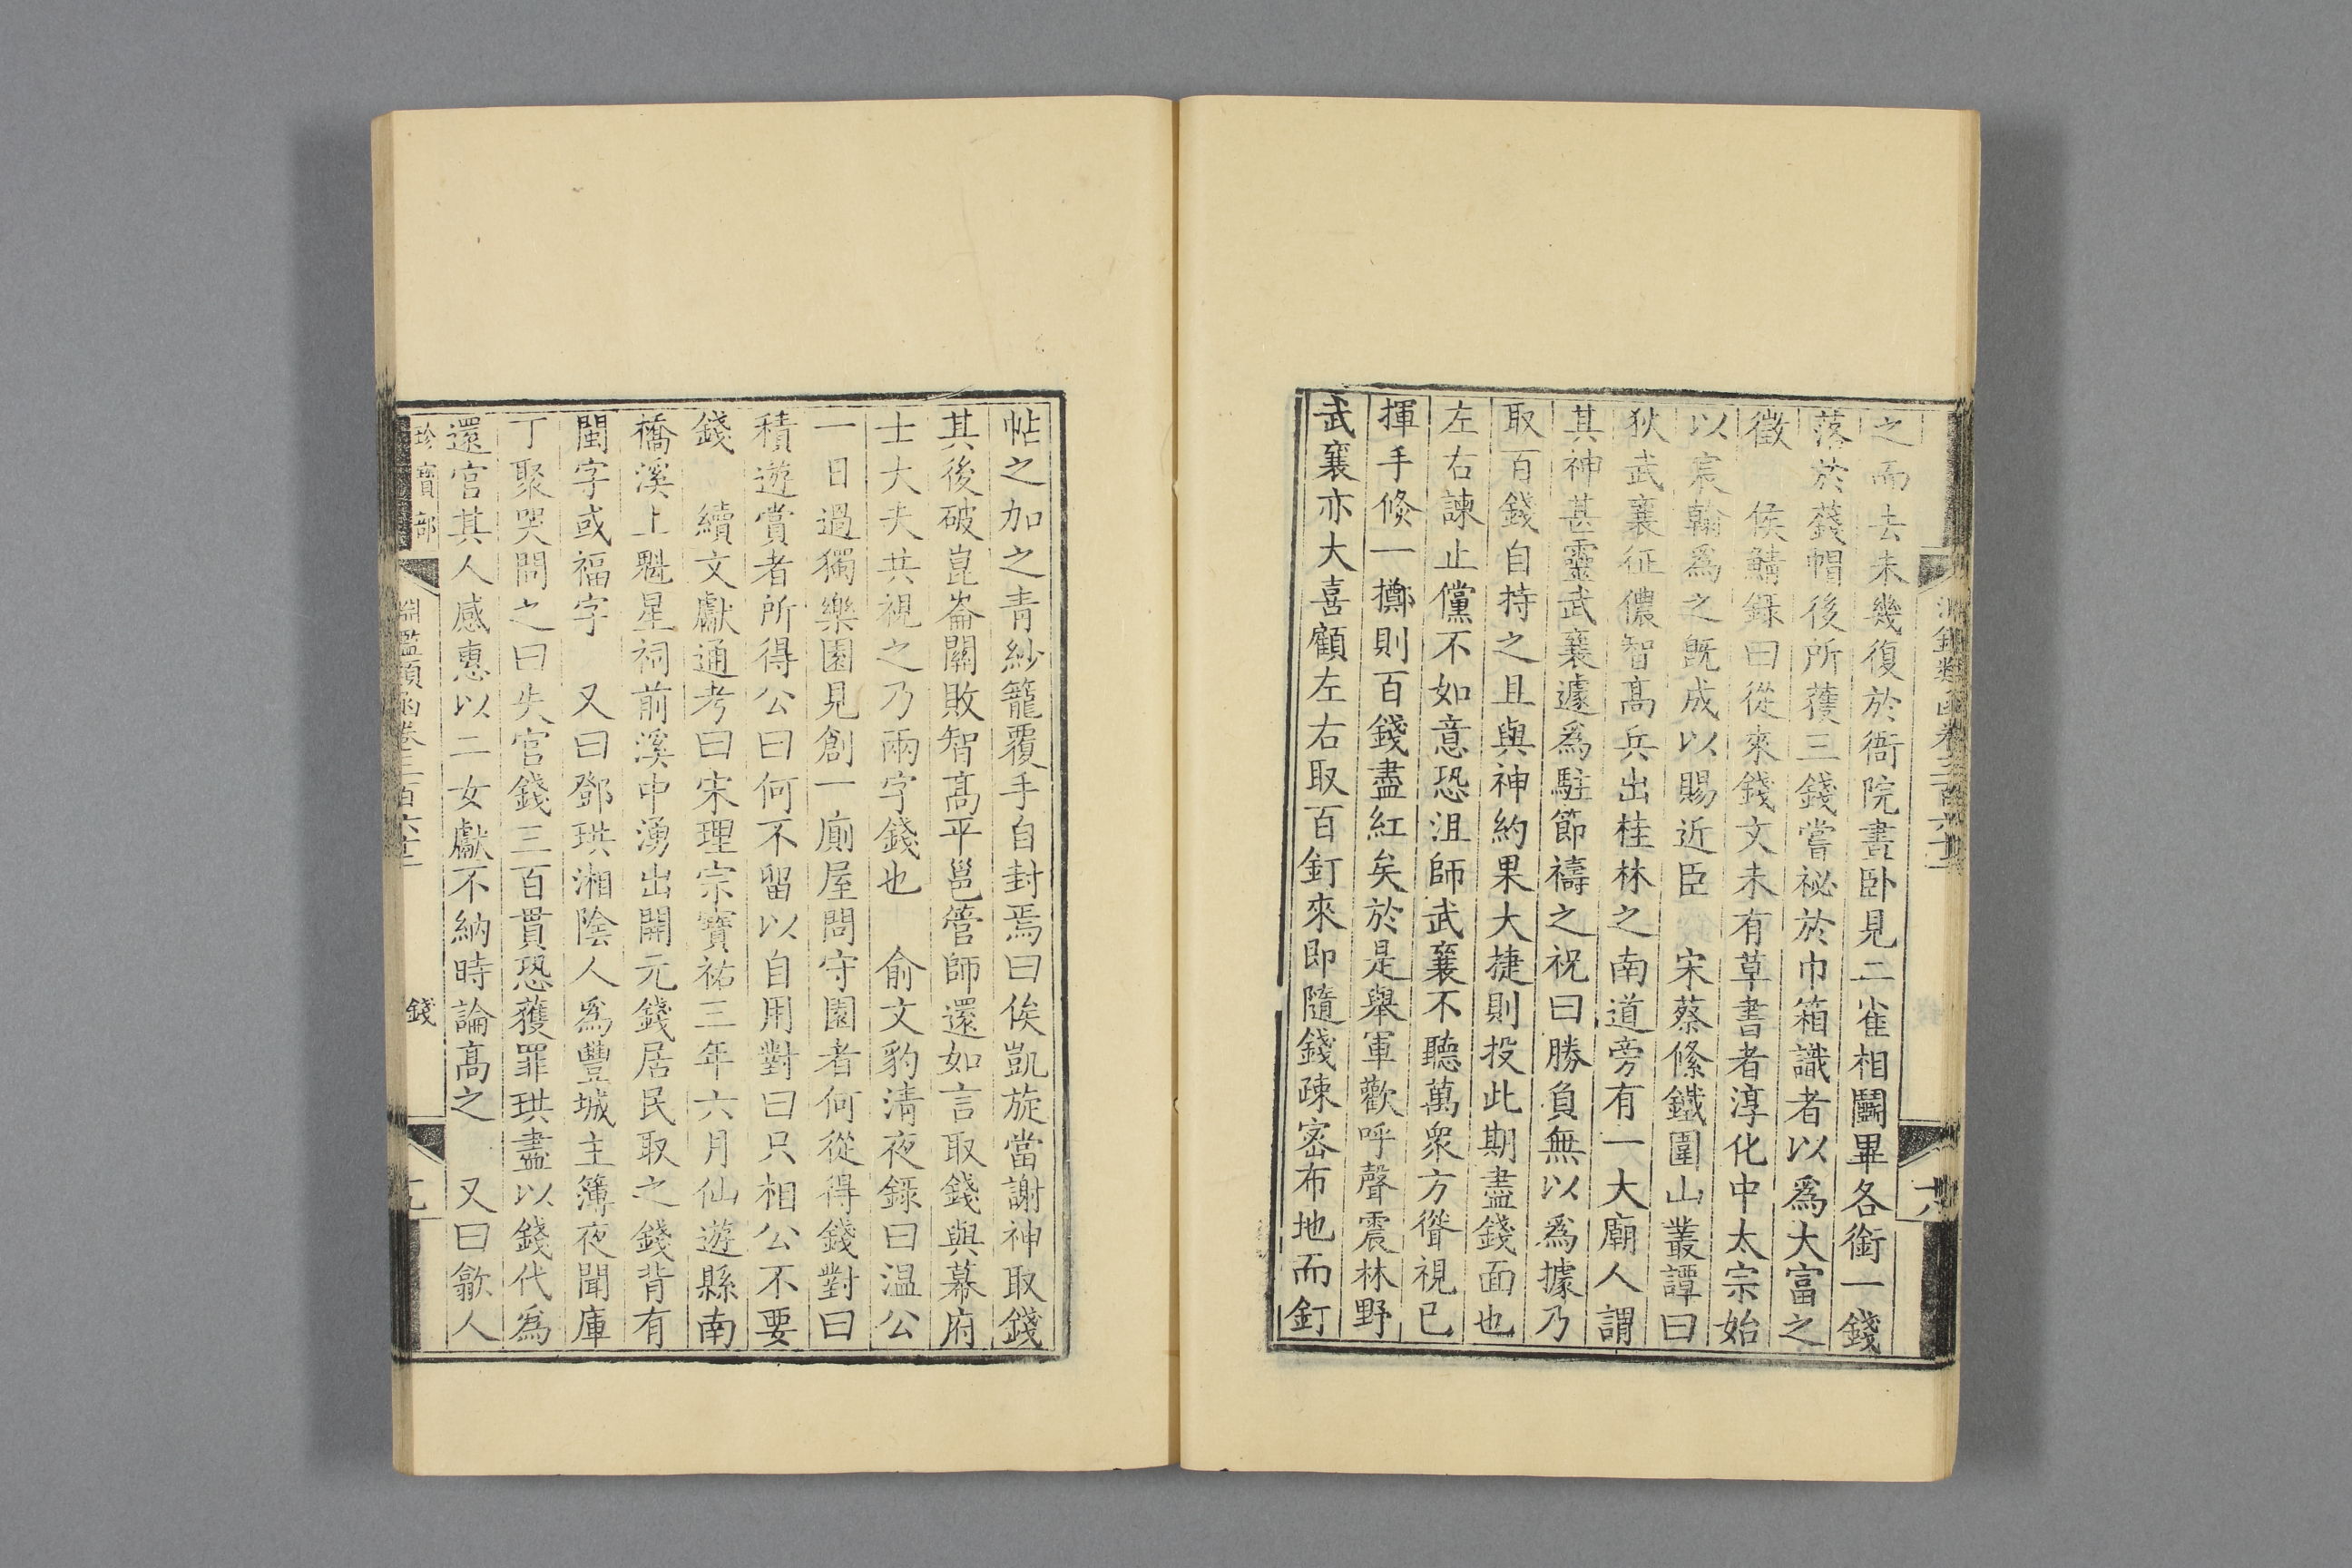 之而去未幾復於衙院晝卧見二雀相鬭畢各銜一錢
落於錢帽後所獲三錢嘗祕於巾箱識者以爲大富之
徵 侯鯖錄曰從來錢文未有草書者淳化中太宗始
以宸翰爲之旣成以賜近臣 宋蔡絛鐵圍山叢譚曰
狄武襄征儂智高兵出桂林之南道旁有一大廟人謂
其神甚靈武襄遽爲駐節禱之祝曰勝負無以爲據乃
取百錢自持之且與神約果大捷則投此期盡錢面也
左右諫止儻不如意恐沮師武襄不聽萬衆方聳視已
揮手倐一擲則百錢盡紅矣於是舉軍歡呼聲震林野
武襄亦大喜顧左右取百釘來即隨錢疎密布地而釘
帖之加之青紗籠覆手自封焉曰俟凱旋當謝神取錢
其後破崑崙關敗智高平邕管師還如言取錢與幕府
士大夫共視之乃兩字錢也 俞文豹清夜錄曰温公
一日過獨樂園見創一廁屋問守園者何從得錢對曰
積遊賞者所得公曰何不留以自用對曰只相公不要
錢 續文獻通考曰宋理宗寶祐三年六月仙遊縣南
橋溪上魁星祠前溪中湧出開元錢居民取之錢背有
閩字或福字 又曰鄧珙湘陰人爲豐城主簿夜聞庫
丁聚哭問之曰失官錢三百貫恐獲罪珙盡以錢代爲
還官其人感惠以二女獻不納時論高之 又曰歙人
珍寶部
淵鑑類函卷三百六十二
錢